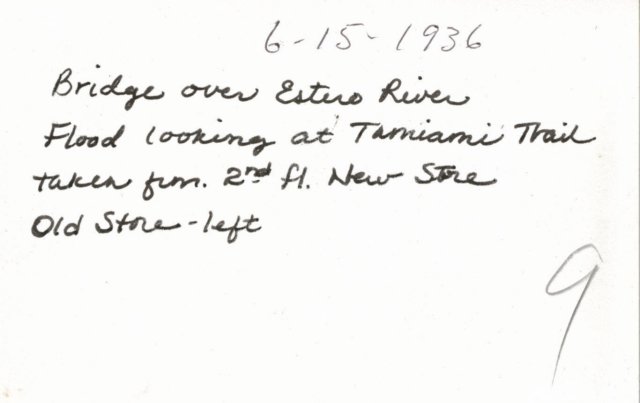 6-15-1936
Bridge over Estero River
Flood looking at Tamiami Trail
taken frm. 2nd fl. New Store
Old Store-left
9